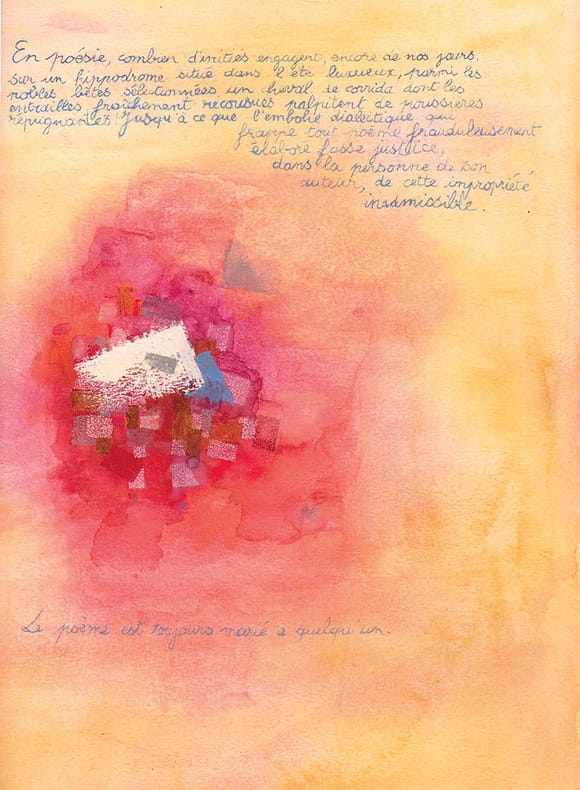 En poésie, combien d'initiés engagent, encore de nos jours,
sur un hippodrome situé dans l'été luxueux, parmi les
nobles bêtes sélectionnées un cheval de corrida dont les
entrailles fraîchement recousues palpitent de poussières
répugnantes! Jusqu'à ce que l'embolie dialectique qui
frappe tout poème frauduleusement
élaboré fasse justice,
dans la personne de son
auteur, de cette impropriété
inadmissible.
Le poème est toujours marié à quelqu'un.